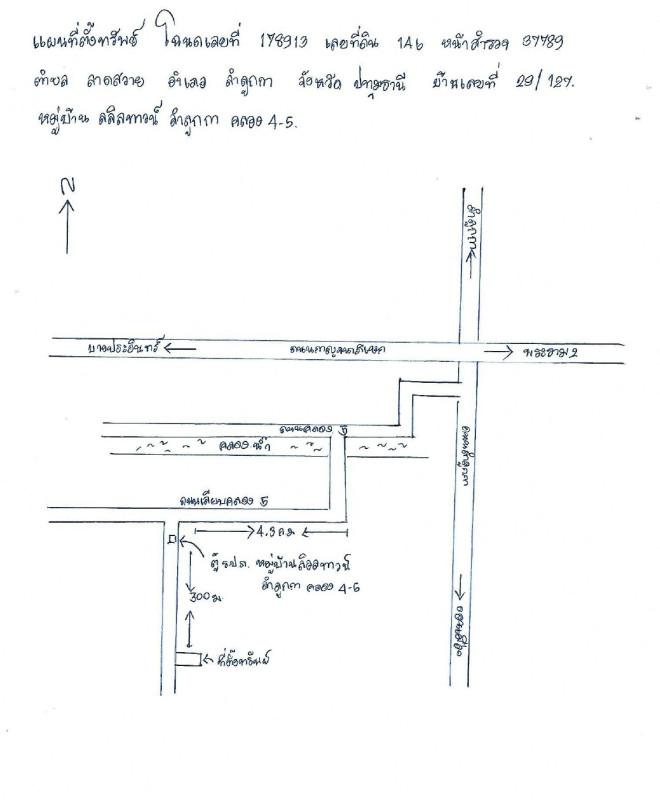 แผนที่ตั้งทรัพย์ โฉนดเลขที่ 178913 เลขที่ดิน 146 หน้าสำรวจ 37789
ตำบล ลาดสวาย อำเภอ ลำลูกกา จังหวัด ปทุมธานี บ้านเลขที่ 29/127.
หมู่บ้าน ลลิลทาวน์ ลำลูกกา คลอง 4-5.
N
ลำลูกกา
บางปะอินทร์
ถนนกาญจนาภิเษก
พระราม 2
ถนนคลอง 5
คลองน้ำ
ถนนลำลูกกา
ถนนเลียบคลอง 5
4.3 กม
ตู้ รปภ. หมู่บ้านลิลลทาวน์
ลำลูกกา คลอง 4-5
300 ม
ที่ตั้งทรัพย์